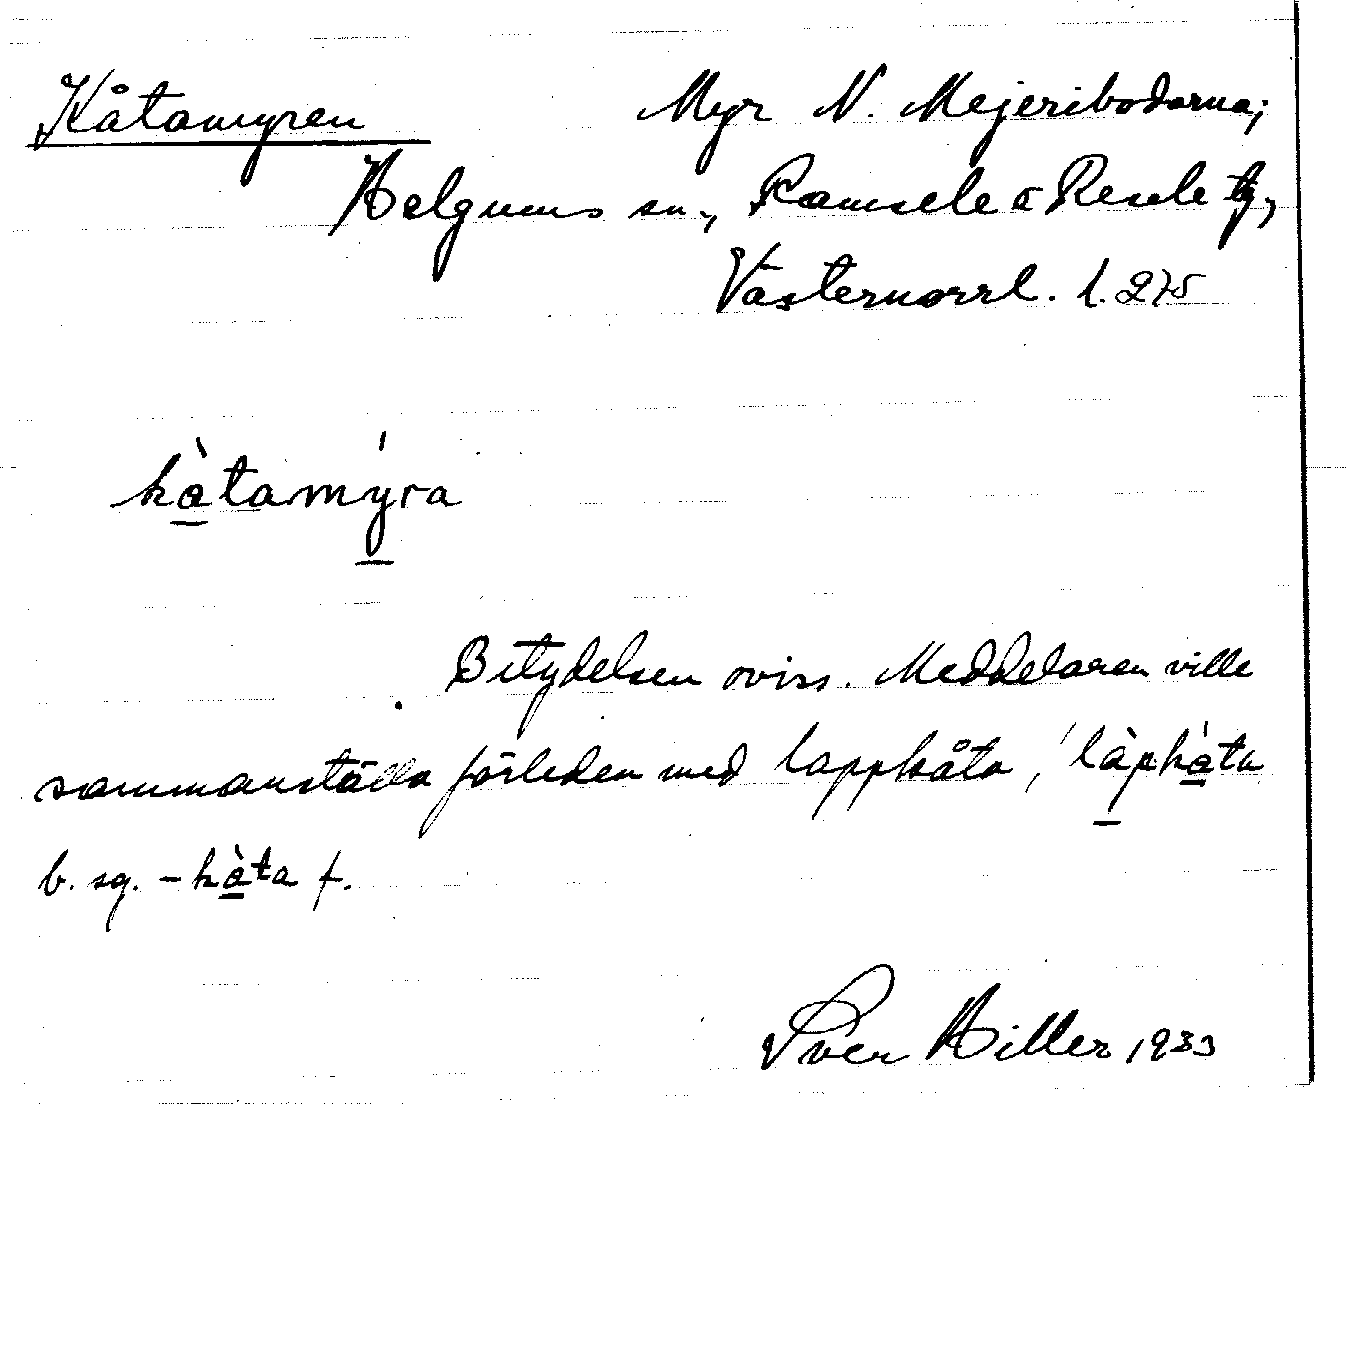 Kåtamyren Myr N. Mejeribodarna;
Helgums sn., Ramsele o Resele tg,
Västernorrl. l. 275
kàtamýra
Betydelsen oviss. Meddelaren ville
sammanställa förleden med lappkåta, ' làpkàta
b. sg. - kàta f.
Sven Hiller 1933